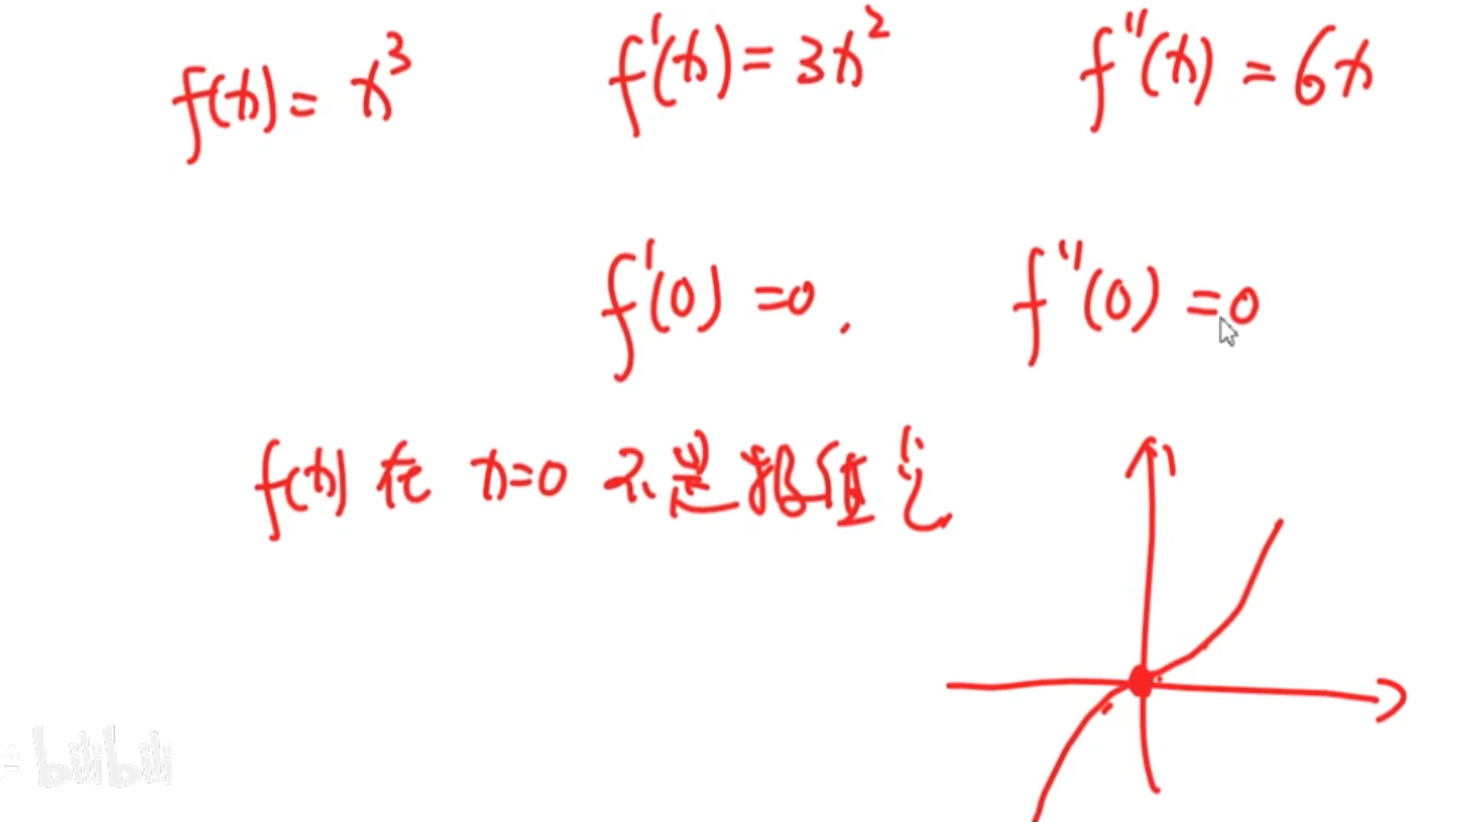 f(x) = x³ f'(x) = 3x² f''(x) = 6x
f'(0) = 0. f''(0) = 0
f(x) 在 x=0 不是极值点
bilibili